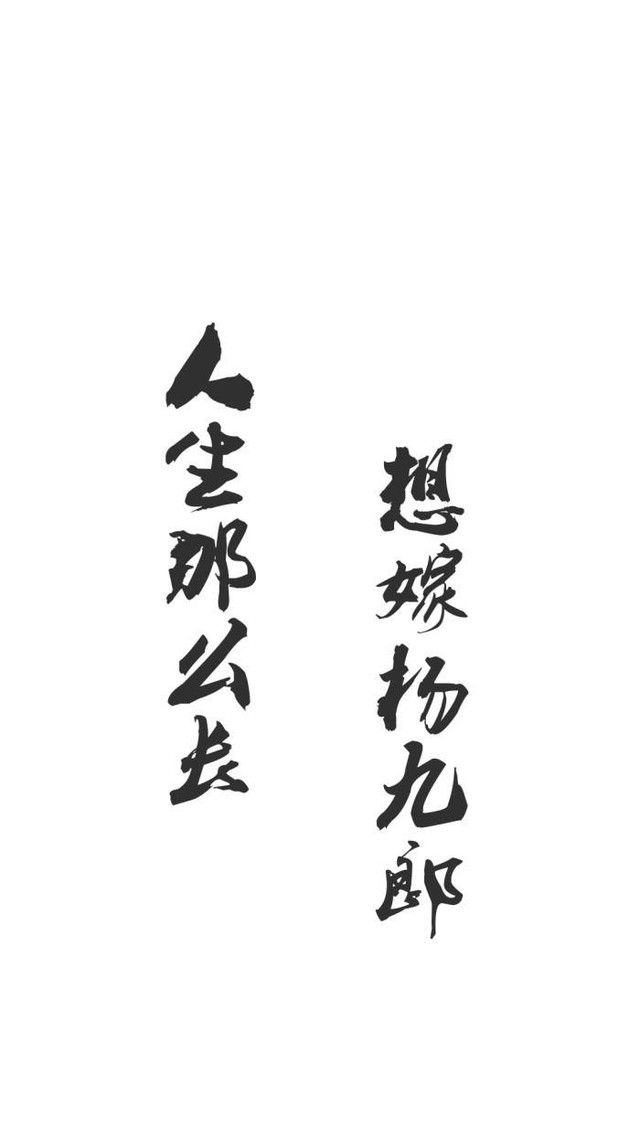 人生那么长
想嫁杨九郎